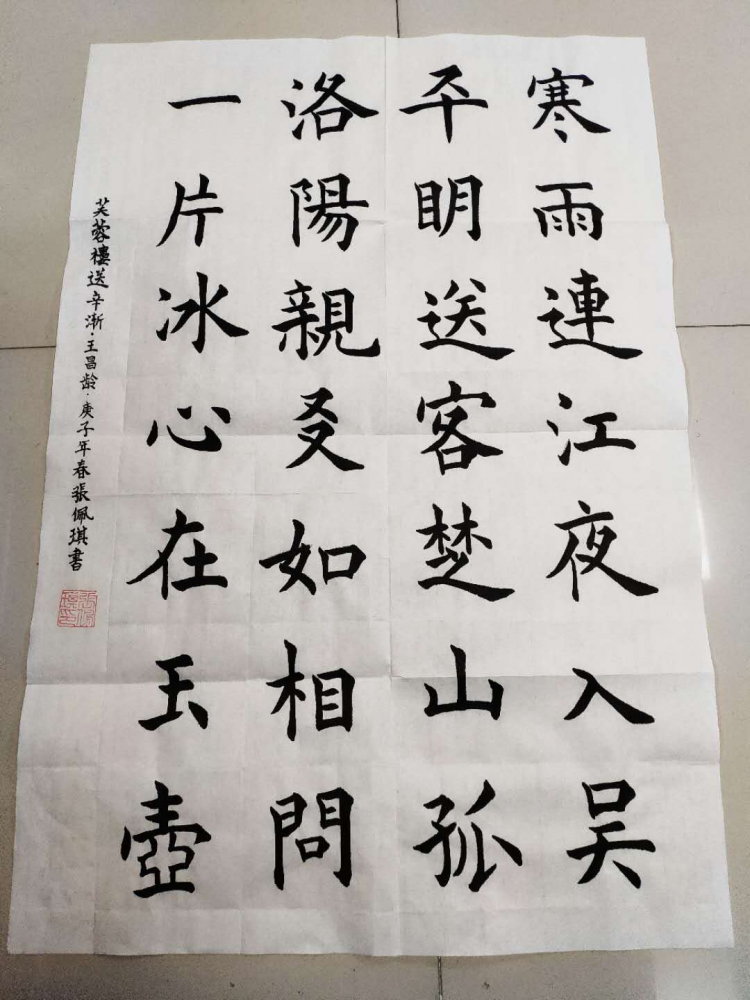 寒雨連江夜入吴
平明送客楚山孤
洛陽親友如相問
一片冰心在玉壺
芙蓉樓送辛渐·王昌龄·庚子年春張佩琪書